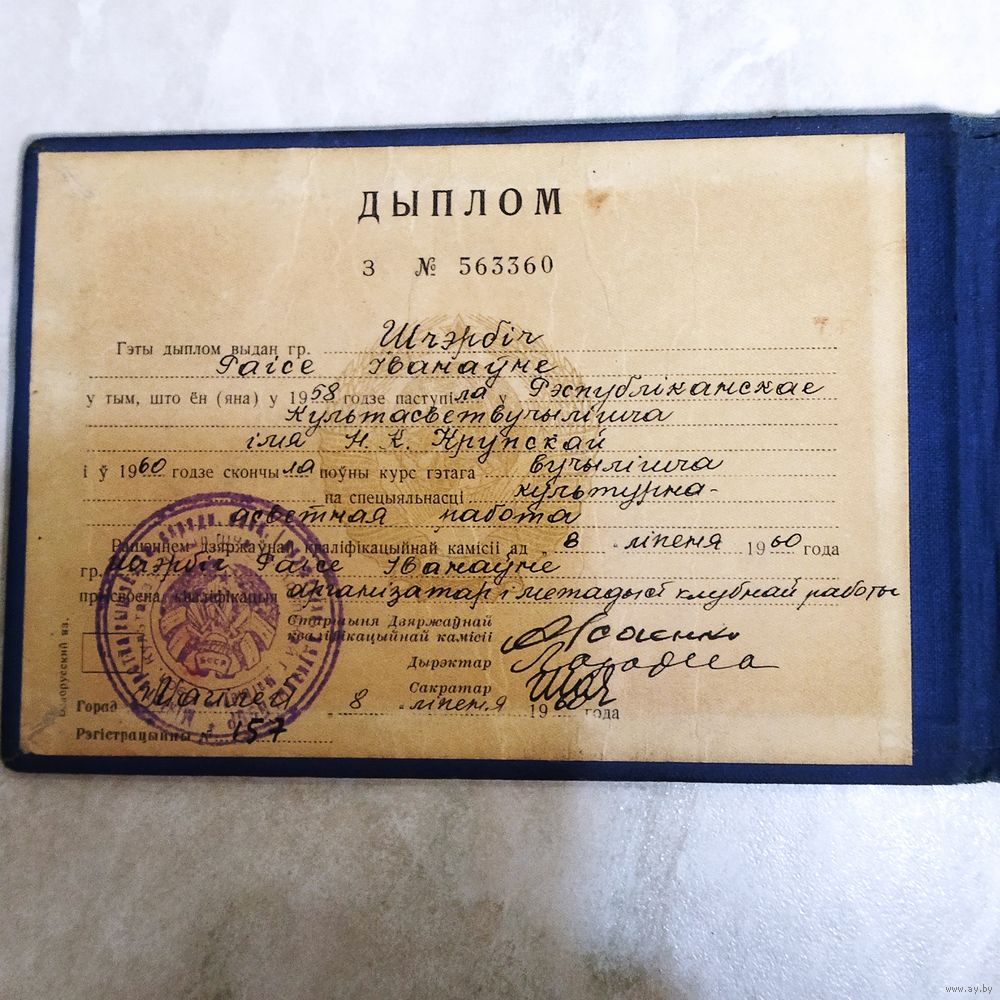 ДЫПЛОМ
З № 563360
Гэты дыплом выдан гр. Шчэрбіч
Раісе Іванаўне
у тым, што ён (яна) у 1958 годзе паступіла у Рэспубліканскае
культасветвучылішча
імя Н. К. Крупскай
і ў 1960 годзе скончыла поўны курс гэтага вучылішча
па спецыяльнасці культурна-
асветная работа
Рашэннем дзяржаўнай кваліфікацыйнай камісіі ад „8" ліпеня 1960 года
гр. Шчэрбіч Раісе Іванаўне
прысвоена кваліфікацыя арганізатар і метадыст клубнай работы
Старшыня Дзяржаўнай
кваліфікацыйнай камісіі
Дырэктар
Сакратар
Горад 8 " ліпеня 1960 года
Рэгістрацыйны № 157
БССР
www.ay.by